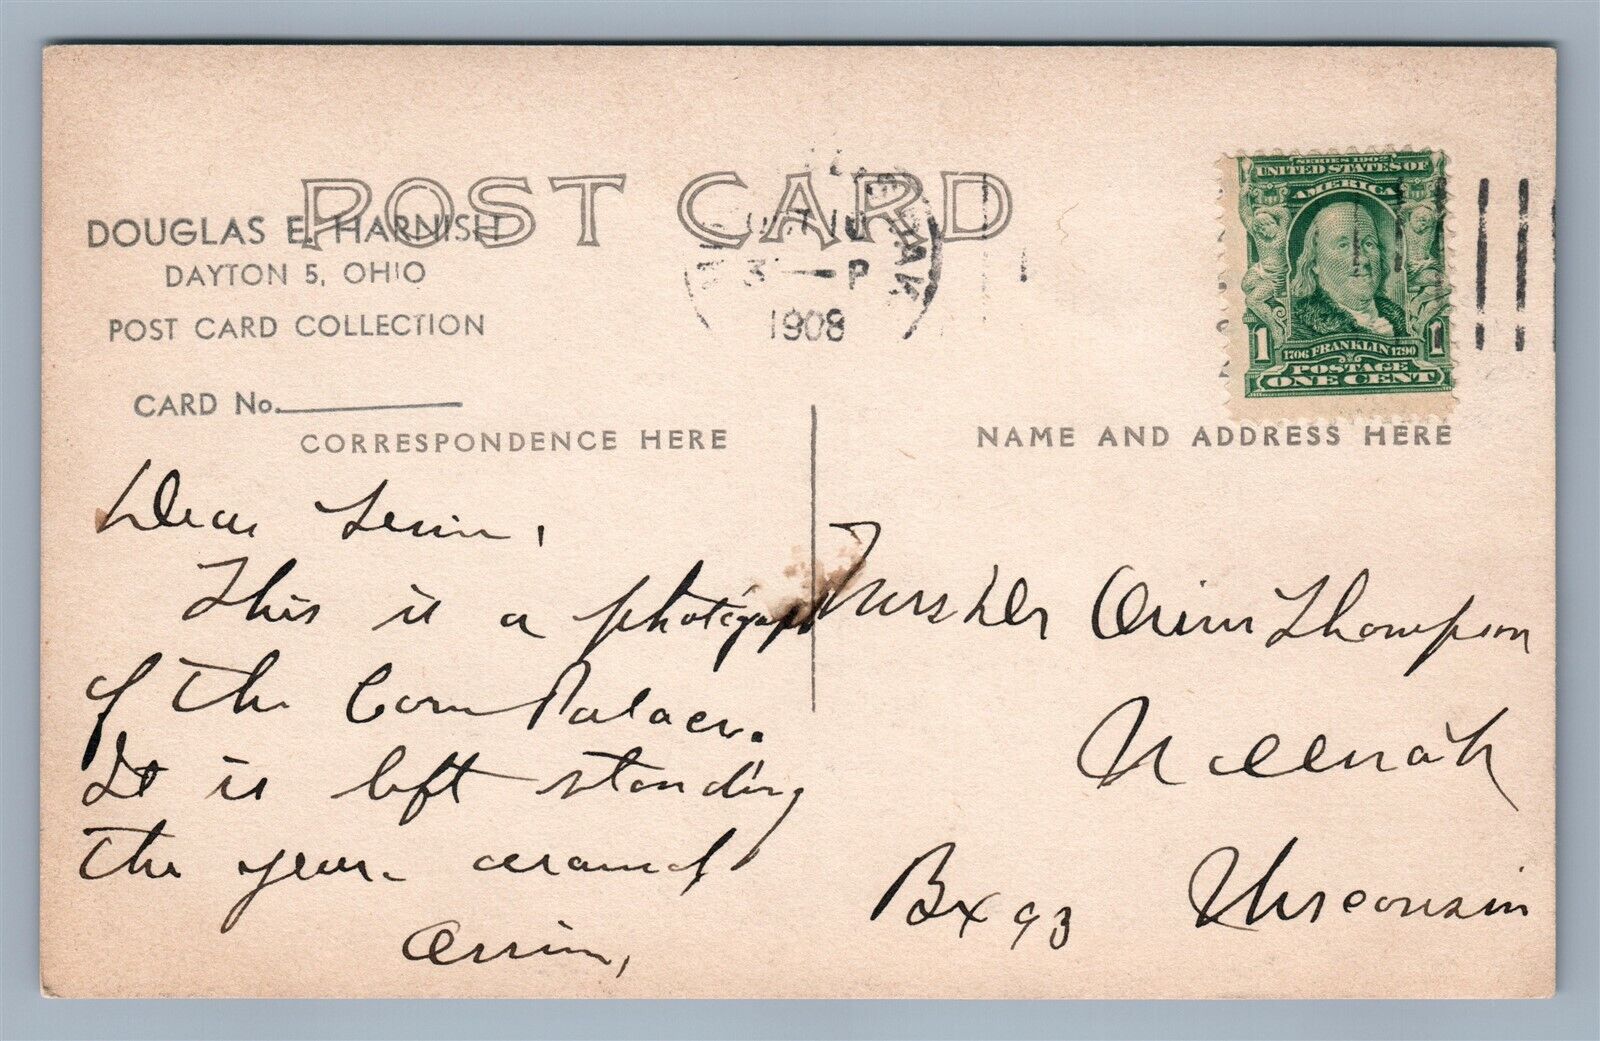 POST CARD
DOUGLAS E. HARNISH
DAYTON 5, OHIO
POST CARD COLLECTION
CARD No.
CORRESPONDENCE HERE
OCT 10
3 - P
1908
SERIES 1902
UNITED STATES OF
AMERICA
1 1706 FRANKLIN 1790 1
POSTAGE
ONE CENT
NAME AND ADDRESS HERE
Dear
This is a photograph
of the Corn Palace.
It is left standing
the year around
Orrin,
Orrin Thompson
Neenah
Bx 93 Wisconsin